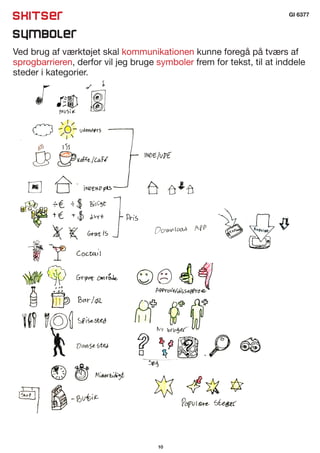 SKITSER
GI 6377
SYMBOLER
Ved brug af værktøjet skal kommunikationen kunne foregå på tværs af
sprogbarrieren, derfor vil jeg bruge symboler frem for tekst, til at inddele
steder i kategorier.
musik
udendørs
INDE/UDE
kaffe/café
indendørs
÷€ ÷$ Billigt
+€ +$ dyrt
Pris
Gratis
Download APP
Coctail
Grønt område
Approve/dissapprove
Bar/øl
Spisested
Ny bruger
Dansested
Søg
Butik
Populære steder
10